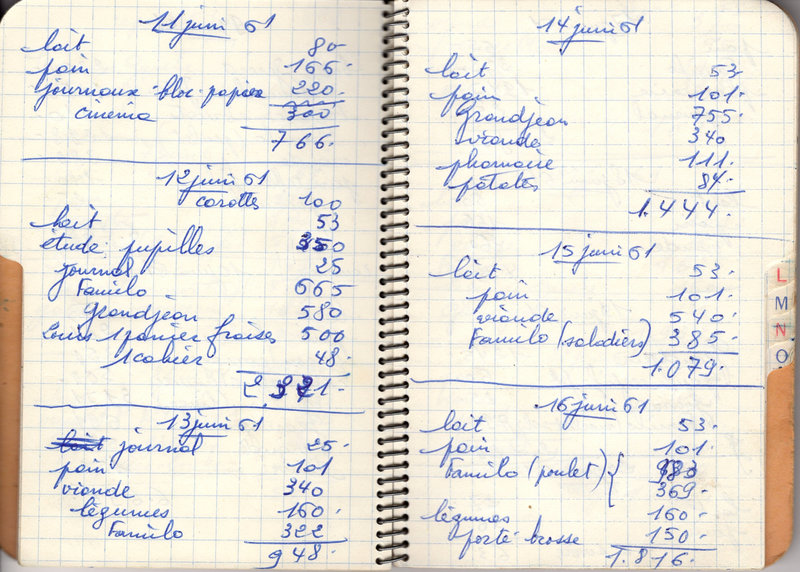 11 juin 61
lait 80
pain 166.
journaux-bloc-papier 220.
cinéma 300
766.
12 juin 61
carottes 100
lait 53
étude pupilles 350
journal 25
Familo 665
Grandjean 580
Louis 1 panier fraises 500
1 cahier 48.
2.321.
13 juin 61
journal 25.
pain 101
viande 340
légumes 160.
Familo 322
948.
14 juin 61
lait 53.
pain 101.
Grandjean 755.
viande 340
pharmacie 111.
patates 84.
1.444.
15 juin 61
lait 53.
pain 101.
viande 540.
Familo (saladiers) 385.
1.079.
16 juin 61
lait 53.
pain 101.
Familo (poulet) { 983
369.
légumes 160.
porte-brosse 150.
1.816.
L
M
N
O